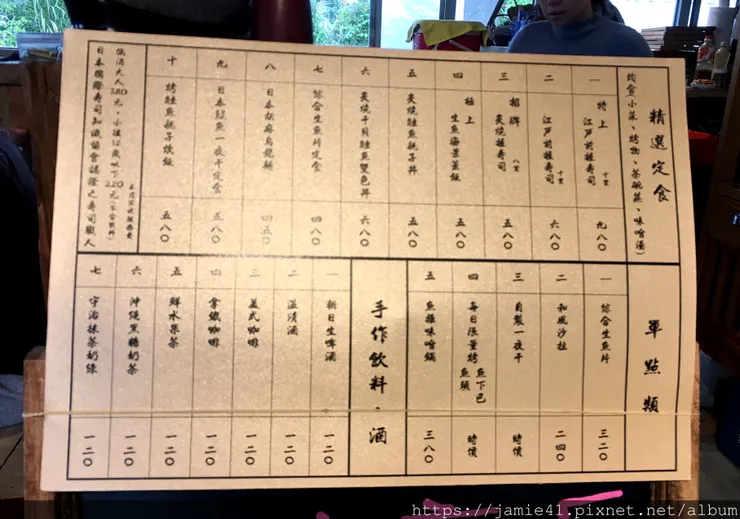 精選定食
均含小菜、烤物、茶碗蒸、味噌湯)
一 特上 江戶前握壽司 十貫 九八〇
二 江戶前握壽司 十貫 六八〇
三 招牌 炙燒握壽司 八貫 五八〇
四 極上 生魚海景蓋飯 五八〇
五 炙燒鮭魚親子丼 五八〇
六 炙燒干貝鮭魚雙色丼 六八〇
七 綜合生魚片定食 四八〇
八 日本胡麻烏龍麵 四五〇
九 日本鯖魚一夜干定食 五八〇
十 烤鮭魚親子炊飯 五八〇
本店不收服務費
低消大人380元、小孩12歲以下220元(不含飲料)
日本國際壽司知識協會認證之壽司職人
單點類
一 綜合生魚片 三二〇
二 和風沙拉 二四〇
三 自製一夜干 時價
四 每日限量烤魚下巴 魚頭 時價
五 魚雜味噌鍋 三八〇
手作飲料、酒
一 朝日生啤酒 一二〇
二 溫清酒 一二〇
三 美式咖啡 一二〇
四 拿鐵咖啡 一二〇
五 鮮水果茶 一二〇
六 沖繩黑糖奶茶 一二〇
七 宇治抹茶奶綠 一二〇
https://jamie41.pixnet.net/album